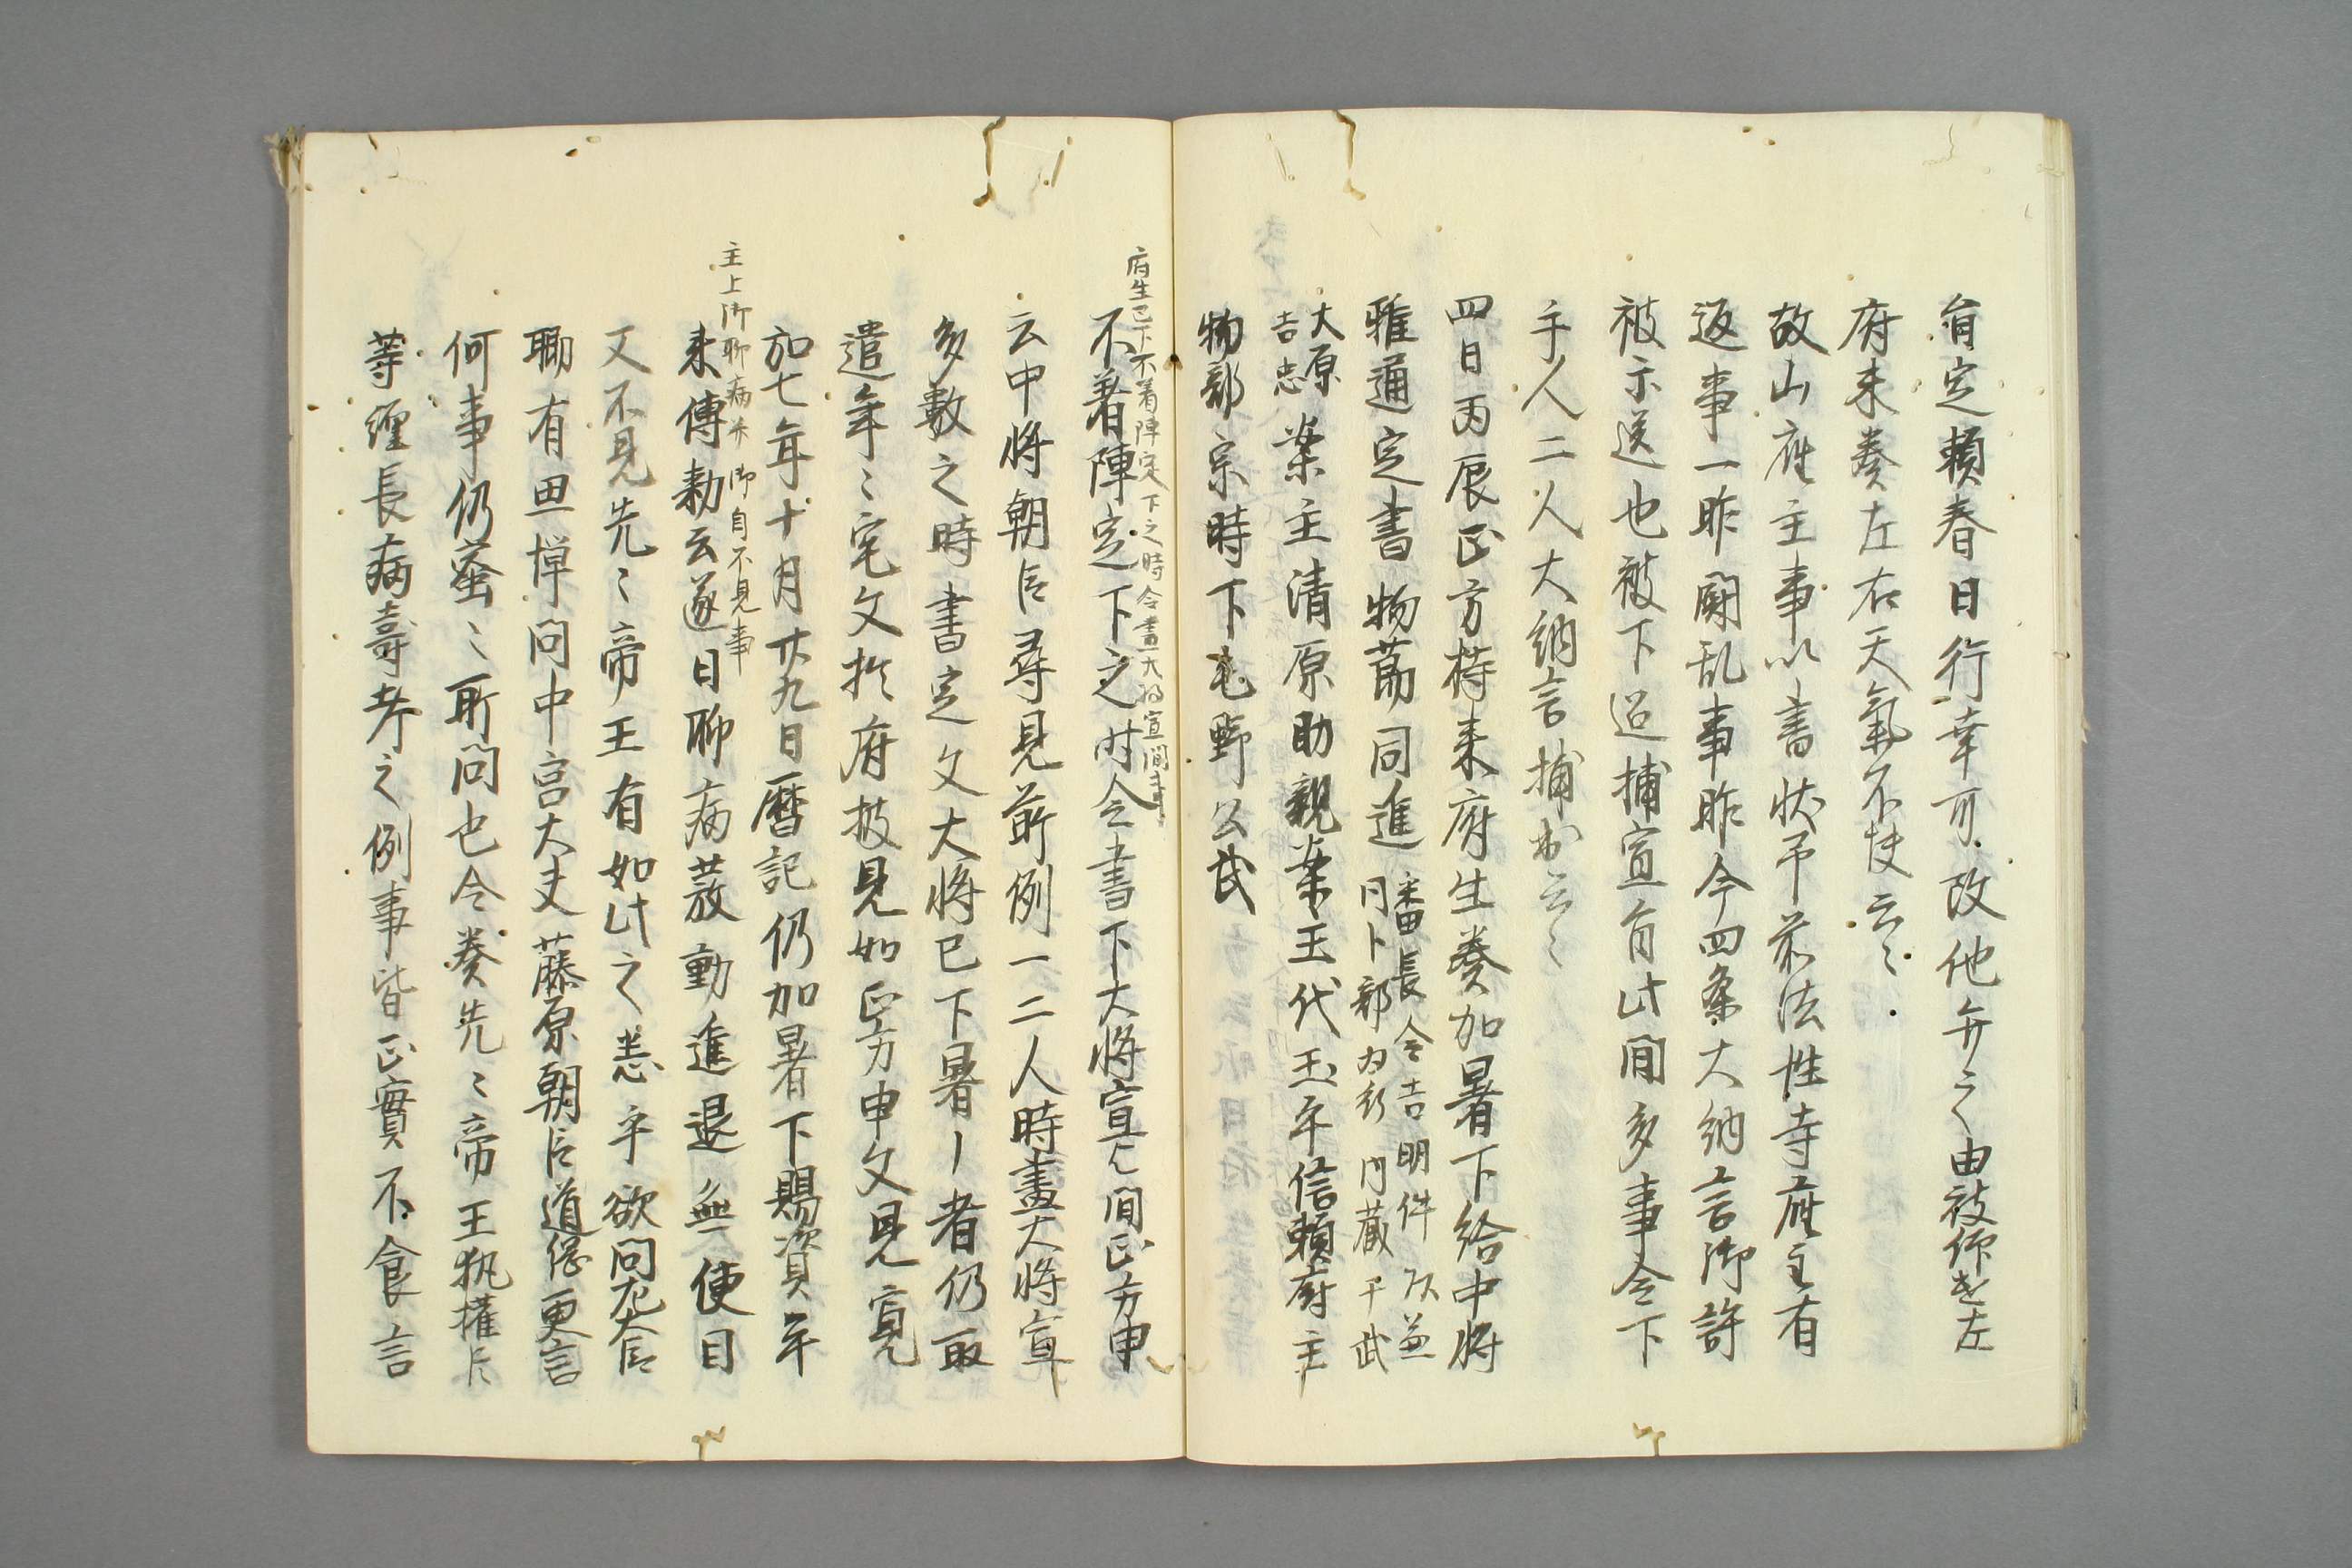 有定頼春日行幸可改他弁之由被仰き左
府未奏左右天氣不快云〻
故山座主事以書状弔前法性寺座主有
返事一昨闘乱事昨今四条大納言御許
被示送也被下追捕宣旨此間多事令下
手人二人大納言捕出云〻
四日丙辰正方持来府生奏加署下給中将
雅通定書物節同進
番長令吉明件次並
同卜部為行内蔵千武
大原
吉忠
業主清原助親葉玉代玉年信頼府主
物部宗時下毛野公武
府生已下不着陣定下之時令書大将宣間事
不著陣定下之时令書下大将宣間正方申
云中将朝臣尋見前例一二人時書大将宣
多數之時書定文大将已下署ー者仍取
遣年〻宅文於府披見如正方申文見寛
加七年十月廿九日暦記仍加署下賜資年
主上御聊病未御自不見事
来傳勅云逐日聊病發動進退無便目
又不見先〻帝王有如此之恙乎欲問尤大臣
聊有思憚問中宮大夫藤原朝臣道綱更言
何事仍蜜〻所問也令奏先〻帝王執權臣
等纒長病壽考之例事皆正實不食言